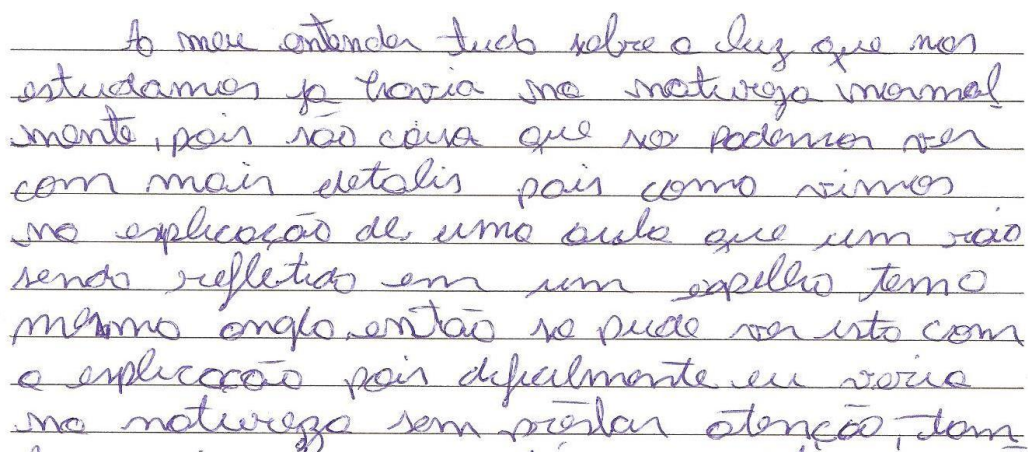 Ao meu entender tudo sobre a luz que nos
estudamos ja havia na natureza normal
mente, pois são coisa que so podemos ver
com mais detalis pois como vimos
na explicação de uma aula que um raio
sendo refletido em um espelho tem o
mesmo anglo, então so pude ver isto com
a explicação pois dificilmente eu veria
na natureza sem prestar atenção, tam